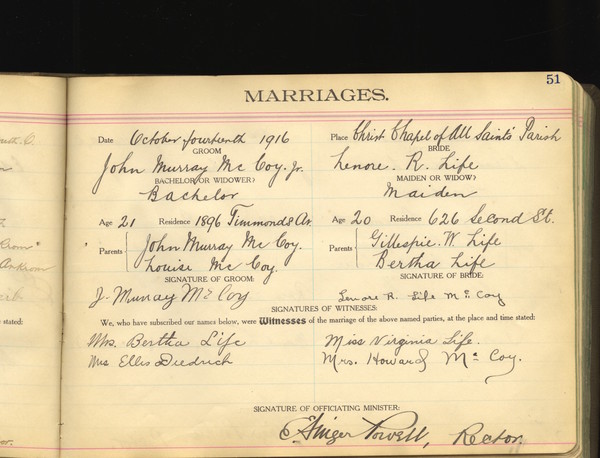 51
MARRIAGES.
Date October fourteenth 1916 Place Christ Chapel of All Saints' Parish
GROOM BRIDE
John Murray Mc Coy. Jr. Lenore. R. Life
BACHELOR (OR WIDOWER) MAIDEN OR WIDOW?
Bachelor Maiden
Age 21 Residence 1896 Age 20 Residence 626 Second St.
Parents John Murray Mc Coy. Parents Gillespie. W. Life
Louise Mc Coy. Bertha Life
SIGNATURE OF GROOM: SIGNATURE OF BRIDE:
J. Murray Mc Coy Lenore R. Life Mc Coy
SIGNATURES OF WITNESSES:
We, who have subscribed our names below, were Witnesses of the marriage of the above named parties, at the place and time stated:
Mrs. Bertha Life Miss Virginia Life.
Mrs Ellis Diedrich Mrs. Howard Mc Coy.
SIGNATURE OF OFFICIATING MINISTER:
Powell, Rector.
e stated: